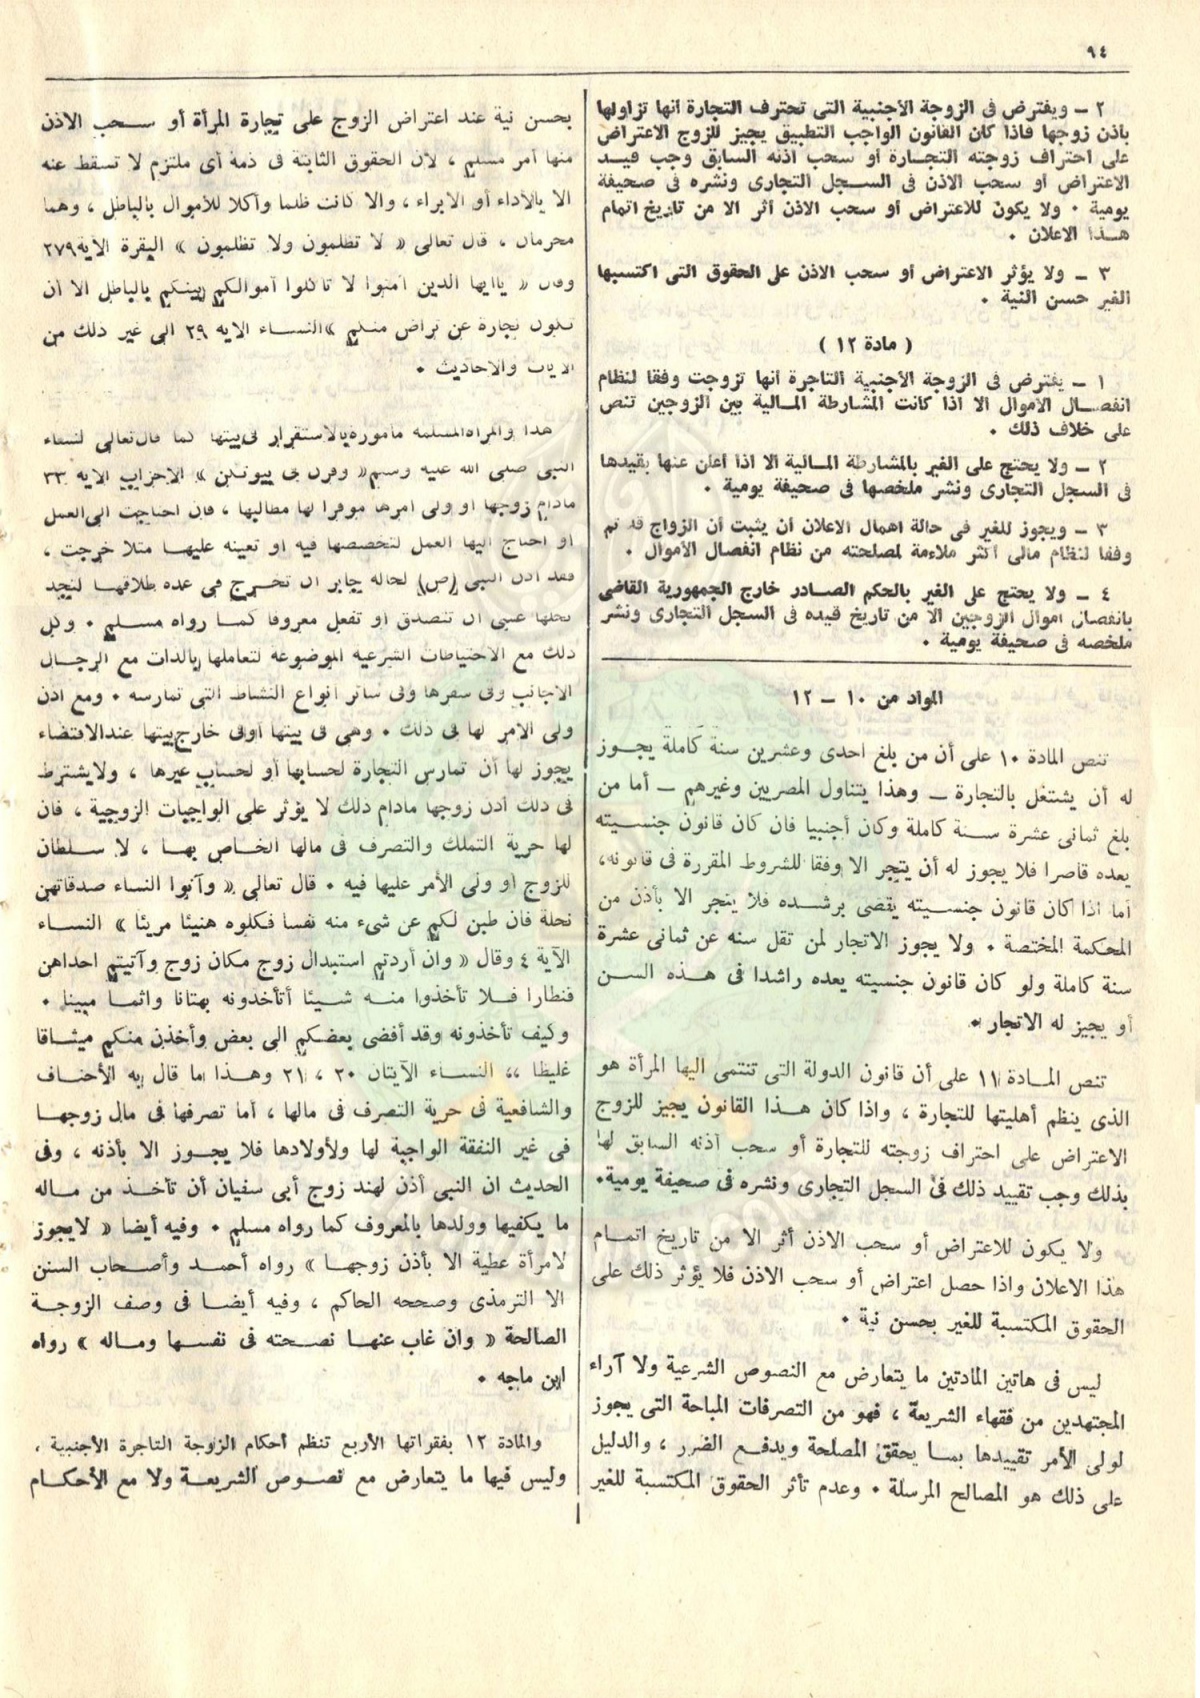 ٩٤
٢ ــ ويفترض فى الزوجة الأجنبية التى تحترف التجارة أنها تزاولها
باذن زوجها فاذا كان القانون الواجب التطبيق يجيز للزوج الاعتراض
على احتراف زوجته التجارة أو سحب اذنه السابق وجب قيد
الاعتراض أو سحب الاذن فى السجل التجارى ونشره فى صحيفة
يومية ٠ ولا يكون للاعتراض أو سحب الاذن أثر الا من تاريخ اتمام
هذا الاعلان ٠
٣ ــ ولا يؤثر الاعتراض أو سحب الاذن على الحقوق التى اكتسبها
الغير حسن النية ٠
( مادة ١٢ )
١ ــ يفترض فى الزوجة الأجنبية التاجرة أنها تزوجت وفقا لنظام
انفصال الأموال الا اذا كانت المشارطة المالية بين الزوجين تنص
على خلاف ذلك ٠
٢ ــ ولا يحتج على الغير بالمشارطة المالية الا اذا أعلن عنها بقيدها
فى السجل التجارى ونشر ملخصها فى صحيفة يومية ٠
٣ ــ ويجوز للغير فى حالة اهمال الاعلان أن يثبت أن الزواج قد تم
وفقا لنظام مالى أكثر ملاءمة لمصلحته من نظام انفصال الأموال ٠
٤ ــ ولا يحتج على الغير بالحكم الصادر خارج الجمهورية القاضى
بانفصال أموال الزوجين الا من تاريخ قيده فى السجل التجارى ونشر
ملخصه فى صحيفة يومية ٠
المواد من ١٠ ــ ١٢
تنص المادة ١٠ على أن من بلغ احدى وعشرين سنة كاملة يجوز
له أن يشتغل بالتجارة ــ وهذا يتناول المصريين وغيرهم ــ أما من
بلغ ثمانى عشرة سنة كاملة وكان أجنبيا فان كان قانون جنسيته
يعده قاصرا فلا يجوز له أن يتجر الا وفقا للشروط المقررة فى قانونه،
أما اذا كان قانون جنسيته يقضى برشده فلا يتجر الا بأذن من
المحكمة المختصة ٠ ولا يجوز الاتجار لمن تقل سنه عن ثمانى عشرة
سنة كاملة ولو كان قانون جنسيته يعده راشدا فى هذه السن
أو يجيز له الاتجار ٠
تنص المادة ١١ على أن قانون الدولة التى تنتمى اليها المرأة هو
الذى ينظم أهليتها للتجارة ، واذا كان هذا القانون يجيز للزوج
الاعتراض على احتراف زوجته للتجارة أو سحب أذنه السابق لها
بذلك وجب تقييد ذلك فى السجل التجارى ونشره فى صحيفة يومية٠
ولا يكون للاعتراض أو سحب الاذن أثر الا من تاريخ اتمام
هذا الاعلان واذا حصل اعتراض أو سحب الاذن فلا يؤثر ذلك على
الحقوق المكتسبة للغير بحسن نية ٠
ليس فى هاتين المادتين ما يتعارض مع النصوص الشرعية ولا آراء
المجتهدين من فقهاء الشريعة ، فهو من التصرفات المباحة التى يجوز
لولى الأمر تقييدها بما يحقق المصلحة ويدفع الضرر ، والدليل
على ذلك هو المصالح المرسلة ٠ وعدم تأثر الحقوق المكتسبة للغير
بحسن نية عند اعتراض الزوج على تجارة المرأة أو سحب الاذن
منها أمر مسلم ، لأن الحقوق الثابتة فى ذمة أى ملتزم لا تسقط عنه
الا بالأداء أو الابراء ، والا كانت ظلما وأكلا للأموال بالباطل ، وهما
محرمان ، قال تعالى « لا تظلمون ولا تظلمون » البقرة الآية٢٧٩
وقال « ياأيها الذين آمنوا لا تأكلوا أموالكم بينكم بالباطل الا أن
تكون تجارة عن تراض منكم »النساء الآية ٢٩ الى غير ذلك من
الآيات والأحاديث ٠
هذا والمرأة المسلمة مأمورة بالاستقرار فى بيتها كما قال تعالى لنساء
النبى صلى الله عليه وسلم« وقرن فى بيوتكن » الأحزاب الآية ٣٣
مادام زوجها أو ولى أمرها موفرا لها مطالبها ، فان احتاجت الى العمل
أو احتاج اليها العمل لتخصصها فيه أو تعينه عليها مثلا خرجت ،
فقد أذن النبى (ص) لخالة جابر أن تخرج فى عدة طلاقها لتجد
نخلها عسى أن تتصدق أو تفعل معروفا كما رواه مسلم ٠ وكل
ذلك مع الاحتياطات الشرعية الموضوعة لتعاملها بالذات مع الرجال
الأجانب وفى سفرها وفى سائر أنواع النشاط التى تمارسه ٠ ومع اذن
ولى الأمر لها فى ذلك ٠ وهى فى بيتها أو فى خارج بيتها عند الاقتضاء
يجوز لها أن تمارس التجارة لحسابها أو لحساب غيرها ، ولا يشترط
فى ذلك أذن زوجها مادام ذلك لا يؤثر على الواجبات الزوجية ، فان
لها حرية التملك والتصرف فى مالها الخاص بها ، لا سلطان
للزوج أو ولى الأمر عليها فيه ٠ قال تعالى « وآتوا النساء صدقاتهن
نحلة فان طبن لكم عن شىء منه نفسا فكلوه هنيئا مريئا » النساء
الآية ٤ وقال « وان أردتم استبدال زوج مكان زوج وآتيتم احداهن
قنطارا فلا تأخذوا منه شيئا أتأخذونه بهتانا واثما مبينا ٠
وكيف تأخذونه وقد أفضى بعضكم الى بعض وأخذن منكم ميثاقا
غليظا » النساء الآيتان ٢٠ ، ٢١ وهذا ما قال به الأحناف
والشافعية فى حرية التصرف فى مالها ، أما تصرفها فى مال زوجها
فى غير النفقة الواجبة لها ولأولادها فلا يجوز الا بأذنه ، وفى
الحديث ان النبى أذن لهند زوج أبى سفيان أن تأخذ من ماله
ما يكفيها وولدها بالمعروف كما رواه مسلم ٠ وفيه أيضا « لايجوز
لامرأة عطية الا بأذن زوجها » رواه أحمد وأصحاب السنن
الا الترمذى وصححه الحاكم ، وفيه أيضا فى وصف الزوجة
الصالحة « وان غاب عنها نصحته فى نفسها وماله » رواه
ابن ماجه ٠
والمادة ١٢ بفقراتها الأربع تنظم أحكام الزوجة التاجرة الأجنبية ،
وليس فيها ما يتعارض مع نصوص الشريعة ولا مع الأحكام